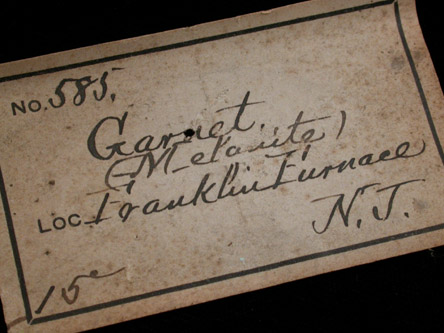 No. 585.
Garnet.
(Melanite)
Loc. Franklin Furnace
N. J.
15c